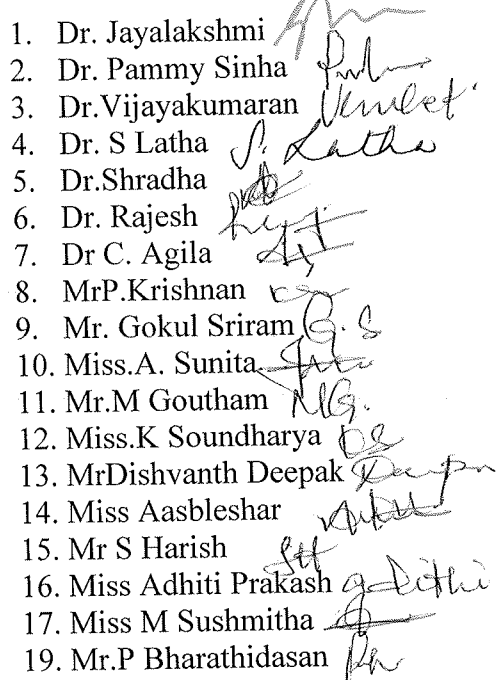 1. Dr. Jayalakshmi
2. Dr. Pammy Sinha
3. Dr.Vijayakumaran
4. Dr. S Latha S. Latha
5. Dr.Shradha
6. Dr. Rajesh
7. Dr C. Agila
8. MrP.Krishnan
9. Mr. Gokul Sriram G. S
10. Miss.A. Sunita
11. Mr.M Goutham MG.
12. Miss.K Soundharya
13. MrDishvanth Deepak
14. Miss Aasbleshar
15. Mr S Harish
16. Miss Adhiti Prakash
17. Miss M Sushmitha
19. Mr.P Bharathidasan